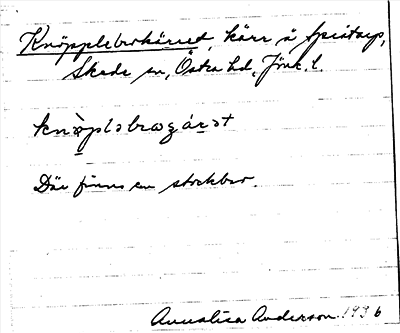 Knöpplebrokärret, kärr å Spértarp,
Skede sn, Östra hd, Jönk. l.
knöpləbrogärət
Där finns en stockbro.
Annalisa Anderson 1936